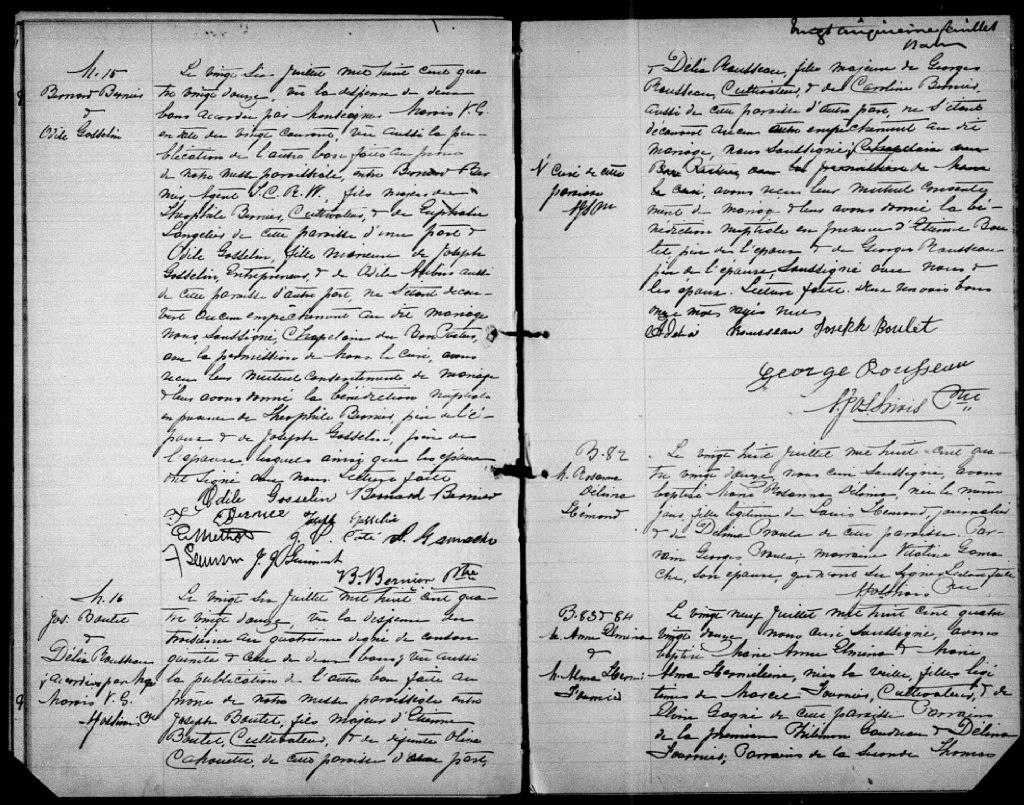 M. 15
Bernard Bernier
&
Odile Gosselin
Le vingt six Juillet mil huit cent qua
tre vingt douze, vu la dispense de deux
bans accordée par Monseigneur Marois V.G.
en date du vingt courant, vu aussi la pu-
blication de l'autre ban faite au prône
de notre messe paroissiale, entre Bernard Ber
nier, Agent I.C.R.W., fils majeur de
Théophile Bernier, Cultivateur, & de Euphrosie
Langelier de cette paroisse d'une part &
Odile Gosselin, fille mineure de Joseph
Gosselin, Entrepreneur, & de Odile Aubin aussi
de cette paroisse d'autre part, ne s'étant décou-
vert aucun empêchement au dit mariage
Nous Soussigné, Chapelain du
avec la permission de Mons. le Curé, avons
reçu leur mutuel consentement de mariage
& leur avons donné la bénédiction nuptiale
en présence de Théophile Bernier, père de l'é-
poux & de Joseph Gosselin, père de
l'épouse lesquels ainsi que les époux
ont signé avec nous. Lecture faite
Odile Gosselin Bernard Bernier
T. Bernier Joseph Gosselin
Côté S. Gamache
B. Bernier Ptre
M. 16
Jos. Boulet
&
Délia Rousseau
accordées par Mgr
Marois V.G.
Le vingt six Juillet mil huit cent qua-
tre vingt douze, vu la dispense du
troisième au quatrième degré de consan
guinité & celle de deux bans, vu aussi
la publication de l'autre ban faite au
prône de notre messe paroissiale entre
Joseph Boulet, fils majeur d'Etienne
Boulet, Cultivateur, & de défunte Olive
Cahouette de cette paroisse d'une part,
Vingt cinquième feuillet
& Délia Rousseau, fille majeure de Georges
Rousseau, Cultivateur, & de Caroline Bernier,
aussi de cette paroisse d'autre part, ne s'étant
découvert aucun autre empêchement au dit
mariage, nous Soussigné, Chapelain
avec la permission de Mons
le Curé, avons reçu leur mutuel consente
ment de mariage & leur avons donné la bé-
nédiction nuptiale en présence d'Etienne Bou
let, père de l'époux & de Georges Rousseau
père de l'épouse, Soussigné avec nous &
les époux. Lecture faite. bons
onze mots rayés nuls
Curé de cette
paroisse
Rousseau Joseph Boulet
George Rousseau
Ptre
B. 82
M. Rosanna
Délima
Lémond
Le vingt huit Juillet mil huit cent qua
tre vingt douze, nous curé soussigné, avons
baptisé Marie Rosanna Délima, née le même
jour, fille légitime de Louis Lemond, journalier
& de Délima Proula de cette paroisse. Par-
rain Georges Proula; marraine Gama
che, son épouse, qui n'ont su signer. Lecture faite
Ptre
B. 83 & 84
M. Anne Elmina
&
M. Alma
Fournier
Le vingt neuf Juillet mil huit cent quatre
vingt douze nous curé soussigné, avons
baptisé Marie Anne Elmina & Marie
Alma nées la veille, filles légi
times de Marcel Fournier, Cultivateur, & de
Gagné de cette paroisse Parrains
de la première Philémon Gaudreau & Délina
Fournier; Parrains de la seconde Thomas